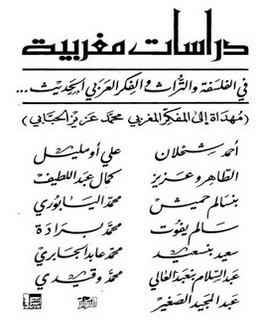 دراسات مغربية
في الفلسفة والتراث والفكر العربي الحديث...
(مهداة إلى المفكر المغربي محمد عزيز الحبابي)
أحمد شحلان علي أومليل
الطاهر وعزيز كمال عبد اللطيف
بنسالم حميش محمد اليابوري
سالم يفوت محمد برادة
سعيد بنسعيد محمد عابد الجابري
عبد السلام بنعبد العالي محمد وقيدي
عبد المجيد الصغير